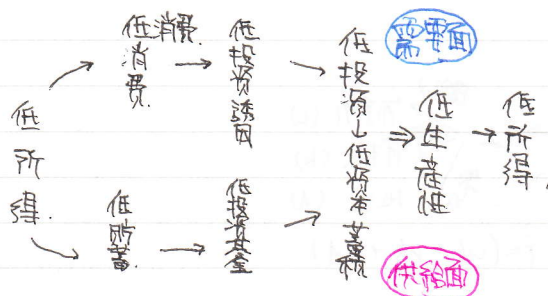 低所得
低消費
消費
低投資誘因
低貯蓄
低投資基金
低投資
低資本蓄積
低生産性
低所得
需要面
供給面